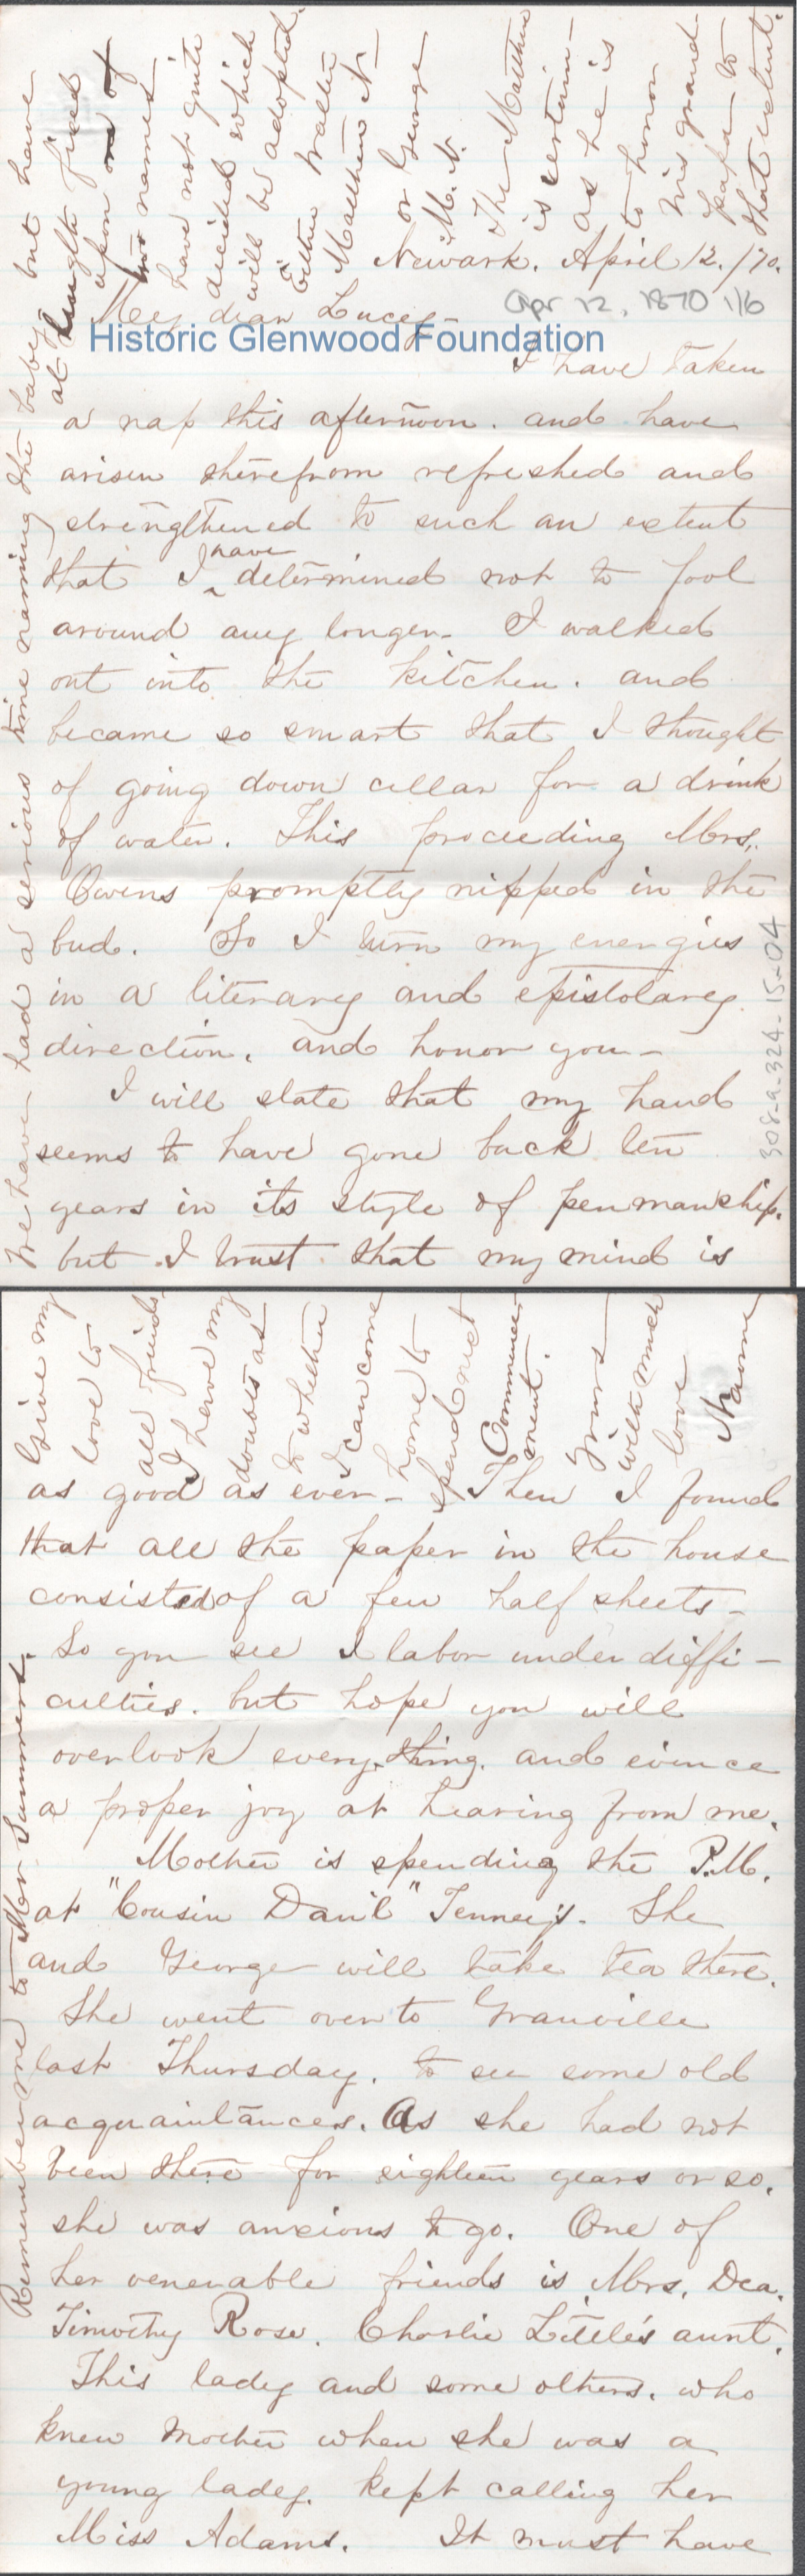 Newark. April 12. /70.
Apr 12, 1870 1/6
My dear Lucy-
Historic Glenwood Foundation
I have taken
a nap this afternoon. and have
arisen therefrom refreshed and
strengthened to such an extent
that I have determined not to fool
around any longer- I walked
out into the kitchen. and
became so smart that I thought
of going down cellar for a drink
of water. This proceeding Mrs.
Owens promptly nipped in the
bud. So I turn my energies
in a literary and epistolary
direction. and honor you-
I will state that my hand
seems to have gone back ten
years in its style of penmanship.
but I trust that my mind is
308-a-324-15-04
We have had a serious time naming the baby, but have
at length fixed
upon one of
two names
have not quite
decided which
will be adopted.
Either Walter
Matthew N-
or George
M. N.
The Matthew
is certain-
as he is
to honor
his grand
papa to
that extent.
as good as ever- Then I found
that all the paper in the house
consisted of a few half sheets-
So you see I labor under diffi-
culties. but hope you will
overlook every thing. and evince
a proper joy at hearing from me.
Mother is spending the P.M.
at "Cousin Dan'l" Tenney's. She
and George will take tea there.
She went over to Granville
last Thursday. to see some old
acquaintances. As she had not
been there for eighteen years or so.
she was anxious to go. One of
her venerable friends is Mrs. Dea.
Timothy Rose. Charlie Little's aunt.
This lady and some others. who
knew Mother when she was a
young lady. kept calling her
Miss Adams. It must have
Remember me to Mrs Summers.
Give my
love to
all friends.
I have my
doubts as
to whether
I can come
home to
spend next
Commence-
ment.
Yours
with much
love
Naume